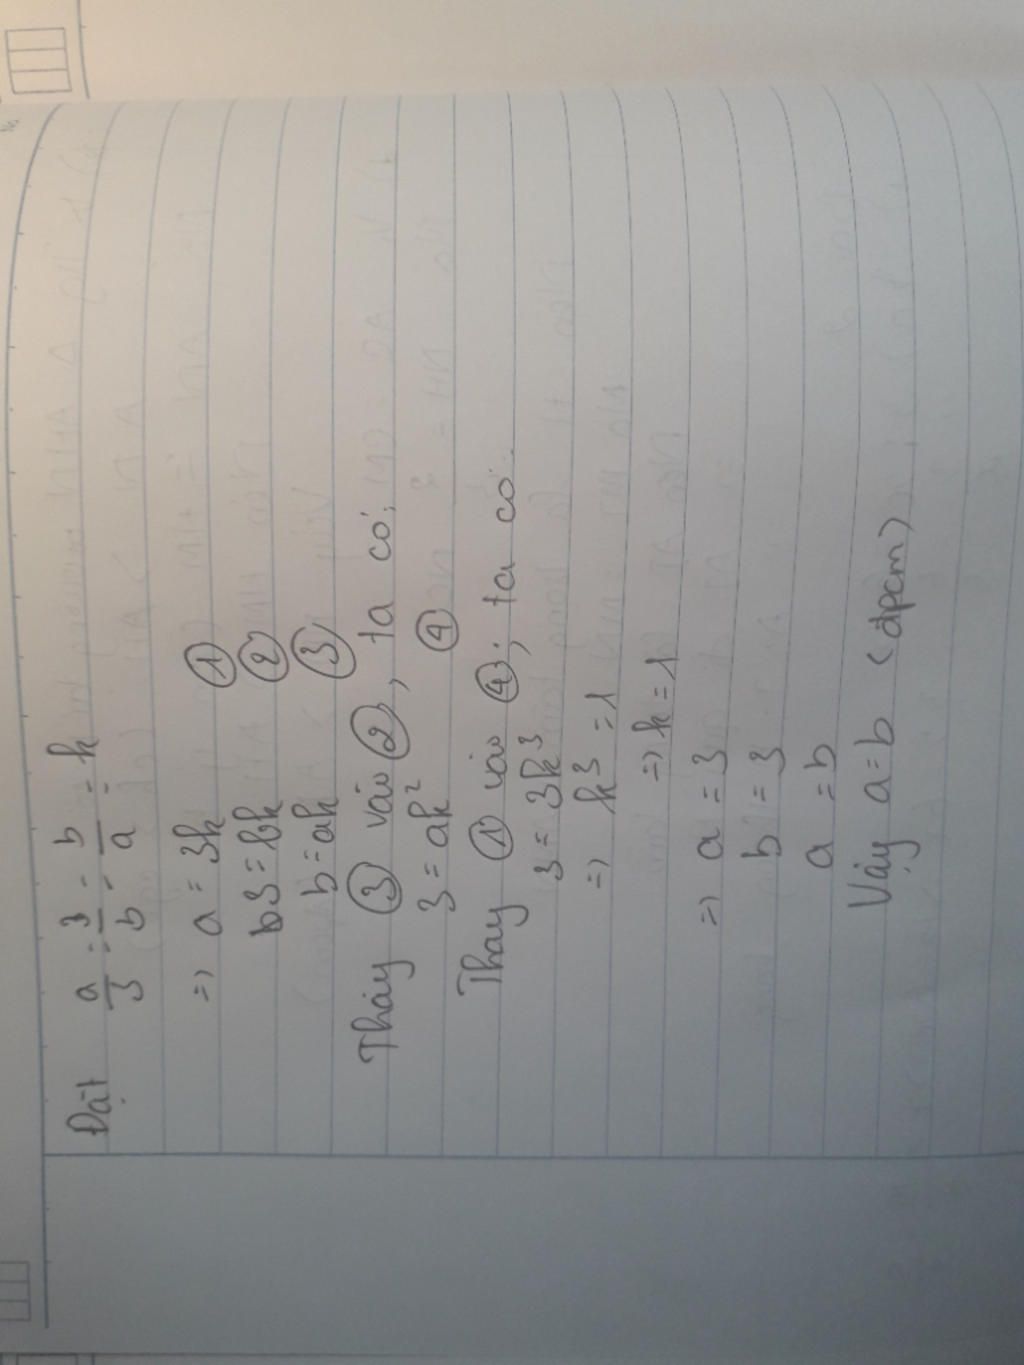 Đặt a/3 = 3/b = b/a = k
=> a = 3k ①
b3 = bk ②
b = ak ③
Thay ③ vào ②, ta có:
3 = ak² ④
Thay ① vào ④; ta có:
3 = 3k³
=> k³ = 1
=> k = 1
=> a = 3
b = 3
a = b
Vậy a = b (đpcm)